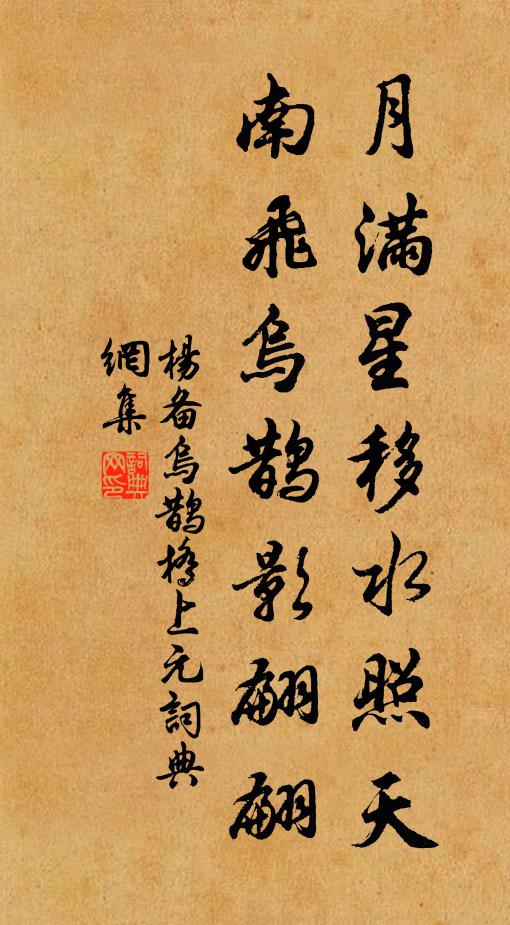 月滿星移水照天
南飛烏鵲影翩翩
楊备烏鵲橋上元詞典
網集
詞典網印